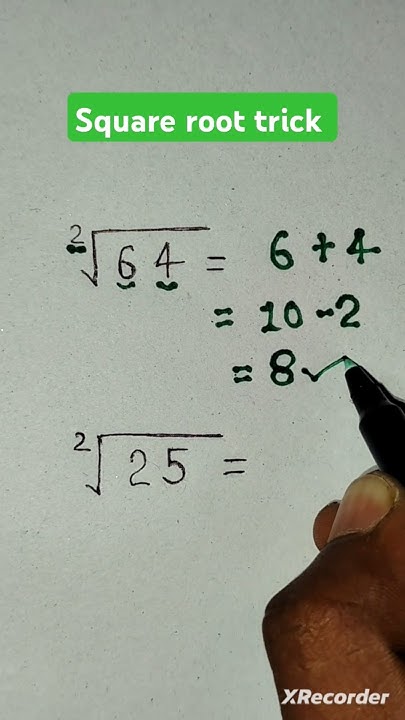 Square root trick
²√64 = 6 + 4
= 10 - 2
= 8 ✓
²√25 =
XRecorder